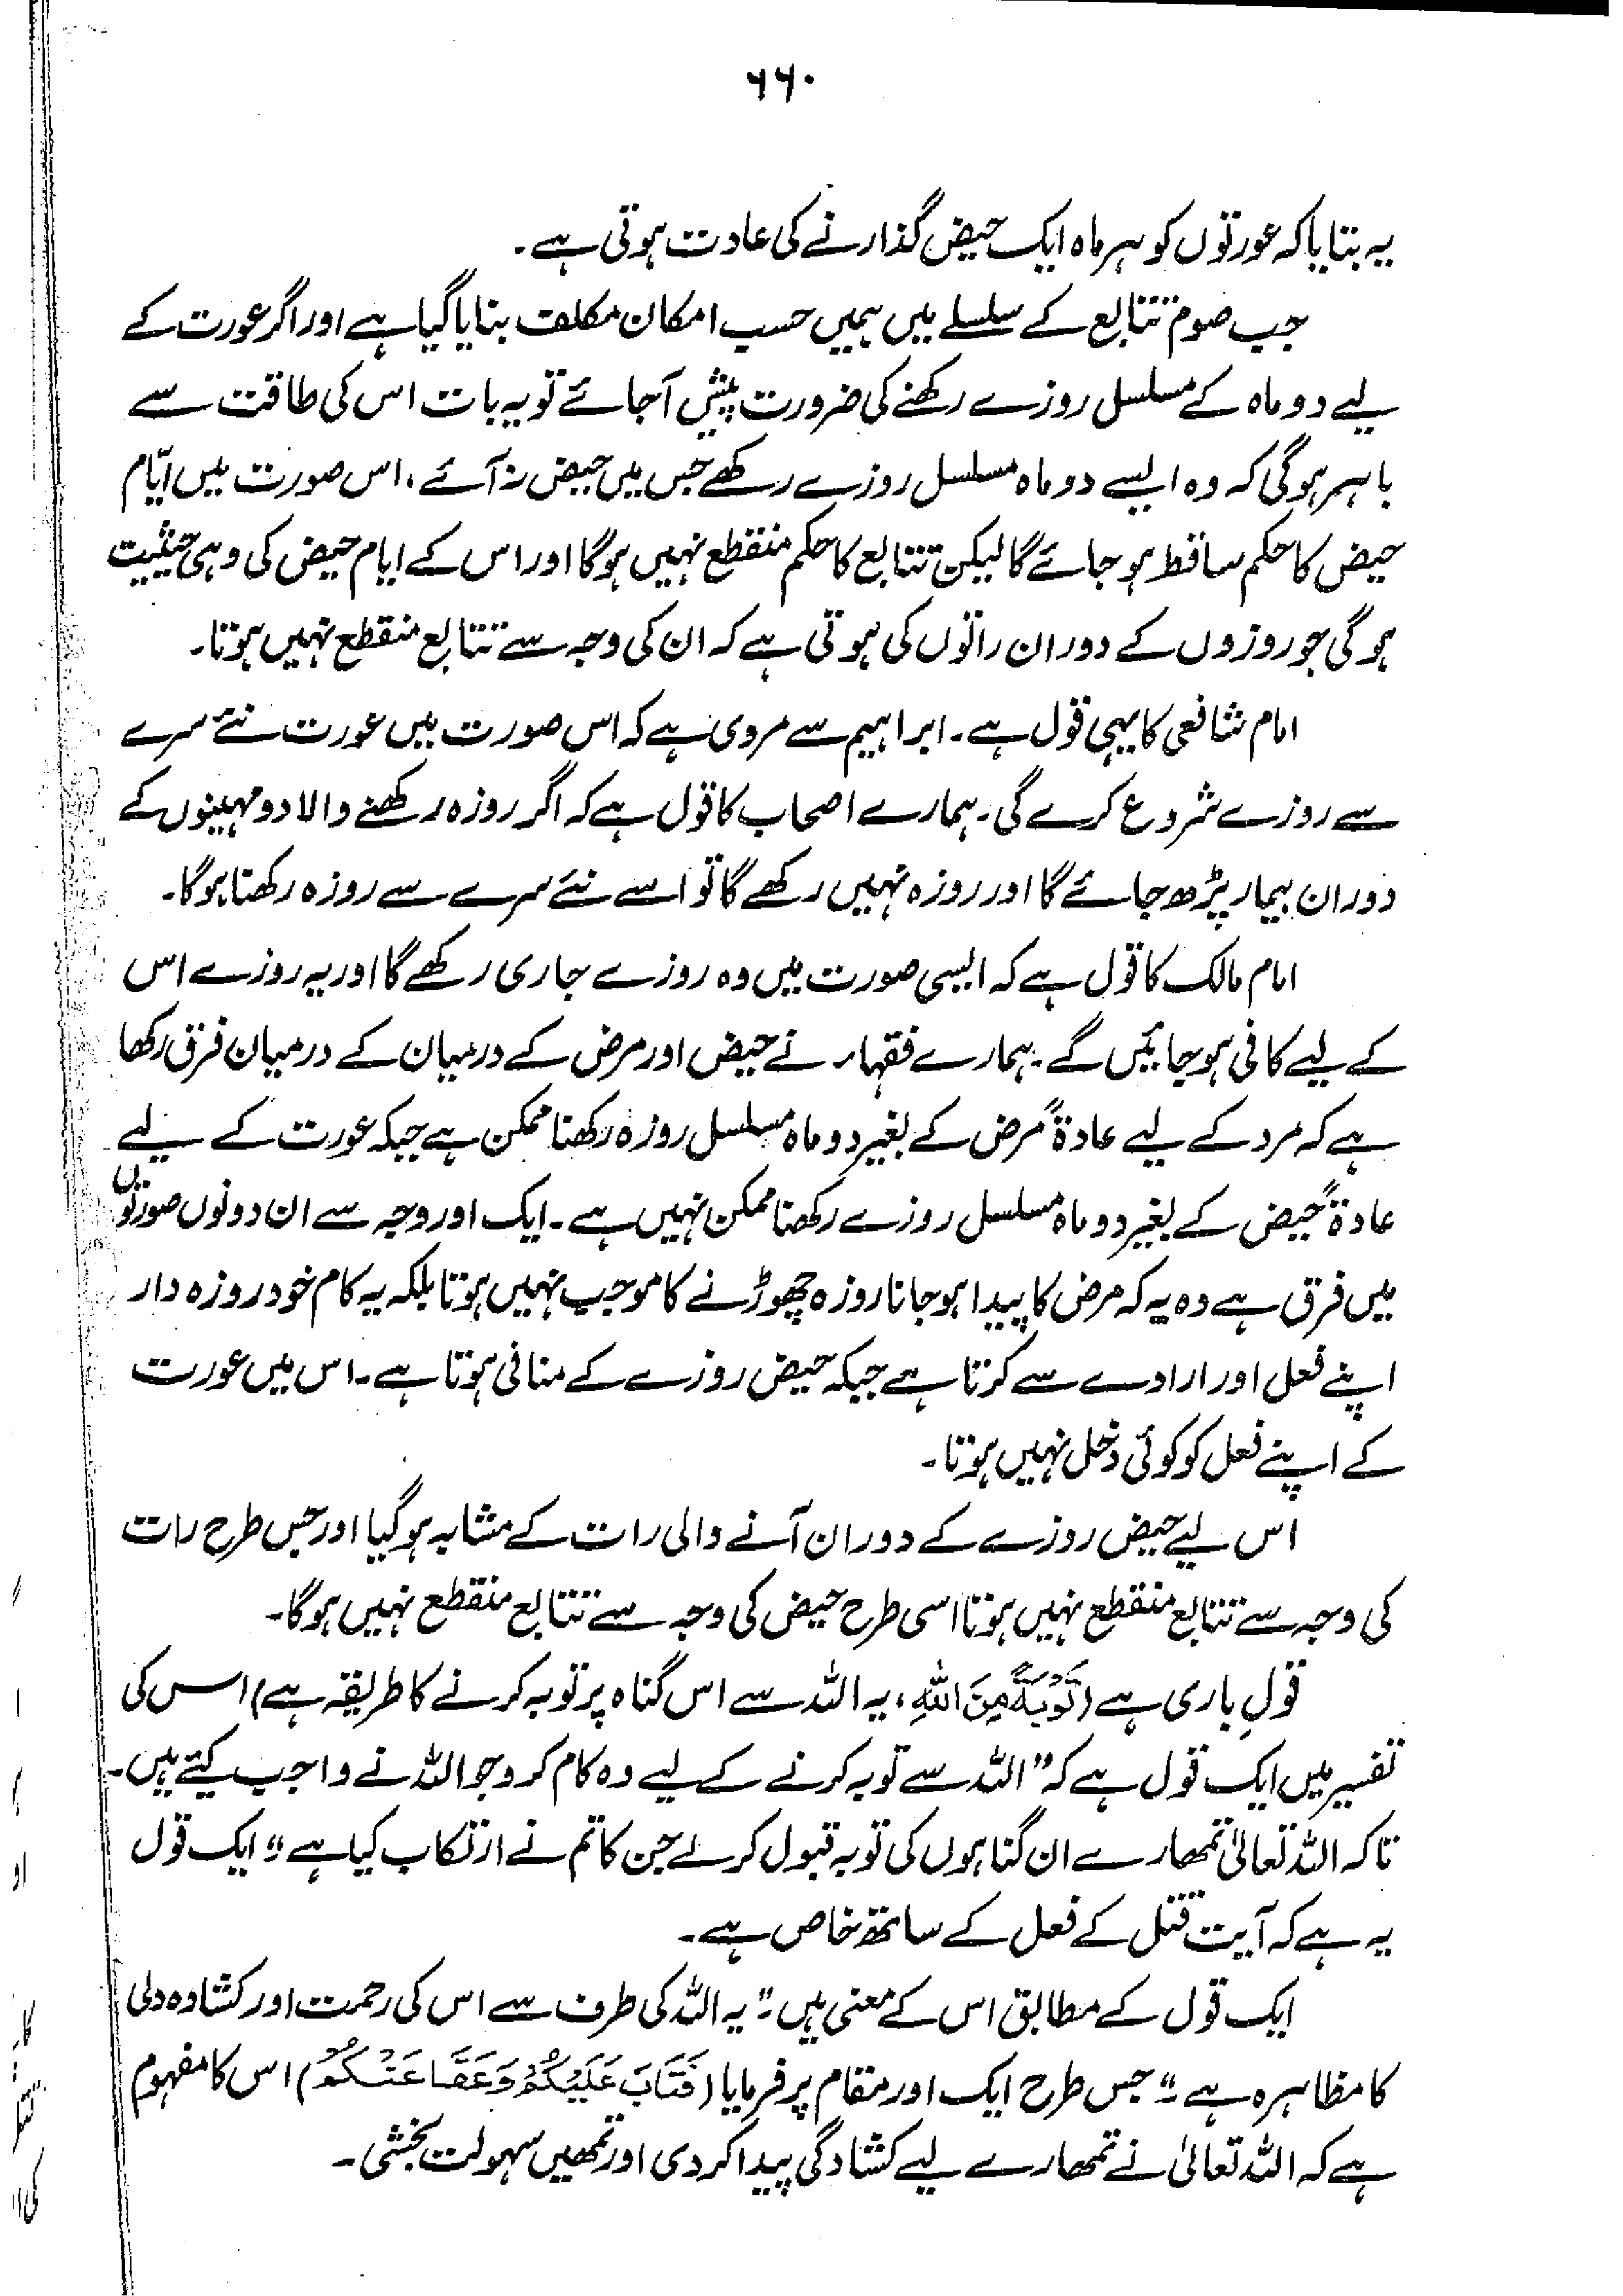 ۶۶۰
یہ بتایا کہ عورتوں کو ہر ماہ ایک حیض گذارنے کی عادت ہوتی ہے۔
جب صوم تتابع کے سلسلے میں ہمیں حسب امکان مکلف بنایا گیا ہے اور اگر عورت کے
لیے دو ماہ کے مسلسل روزے رکھنے کی ضرورت پیش آجائے تو یہ بات اس کی طاقت سے
باہر ہوگی کہ وہ ایسے دو ماہ مسلسل روزے رکھے جس میں حیض نہ آئے، اس صورت میں ایّام
حیض کا حکم ساقط ہو جائے گا لیکن تتابع کا حکم منقطع نہیں ہوگا اور اس کے ایام حیض کی وہی حیثیت
ہوگی جو روزوں کے دوران راتوں کی ہوتی ہے کہ ان کی وجہ سے تتابع منقطع نہیں ہوتا۔
امام شافعی کا یہی قول ہے۔ ابراہیم سے مروی ہے کہ اس صورت میں عورت نئے سرے
سے روزے شروع کرے گی۔ ہمارے اصحاب کا قول ہے کہ اگر روزہ رکھنے والا دو مہینوں کے
دوران بیمار پڑھ جائے گا اور روزہ نہیں رکھے گا تو اسے نئے سرے سے روزہ رکھنا ہوگا۔
امام مالک کا قول ہے کہ ایسی صورت میں وہ روزے جاری رکھے گا اور یہ روزے اس
کے لیے کافی ہو جائیں گے۔ ہمارے فقہاء نے حیض اور مرض کے درمیان کے درمیان فرق رکھا
ہے کہ مرد کے لیے عادۃً مرض کے بغیر دو ماہ مسلسل روزہ رکھنا ممکن ہے جبکہ عورت کے لیے
عادۃً حیض کے بغیر دو ماہ مسلسل روزے رکھنا ممکن نہیں ہے۔ ایک اور وجہ سے ان دونوں صورتوں
میں فرق ہے وہ یہ کہ مرض کا پیدا ہو جانا روزہ چھوڑنے کا موجب نہیں ہوتا بلکہ یہ کام خود روزہ دار
اپنے فعل اور ارادے سے کرتا ہے جبکہ حیض روزے کے منافی ہوتا ہے۔ اس میں عورت
کے اپنے فعل کو کوئی دخل نہیں ہوتا۔
اس لیے حیض روزے کے دوران آنے والی رات کے مشابہ ہوگیا اور جس طرح رات
کی وجہ سے تتابع منقطع نہیں ہوتا اسی طرح حیض کی وجہ سے تتابع منقطع نہیں ہوگا۔
قولِ باری ہے (تَوْبَةً مِنَ اللهِ، یہ اللہ سے اس گناہ پر توبہ کرنے کا طریقہ ہے) اس کی
تفسیر میں ایک قول ہے کہ "اللہ سے توبہ کرنے کے لیے وہ کام کرو جو اللہ نے واجب کیئے ہیں۔
تاکہ اللہ تعالیٰ تمھارے ان گناہوں کی توبہ قبول کرلے جن کا تم نے ارتکاب کیا ہے" ایک قول
یہ ہے کہ آیت قتل کے فعل کے ساتھ خاص ہے۔
ایک قول کے مطابق اس کے معنی ہیں: "یہ اللہ کی طرف سے اس کی رحمت اور کشادہ دلی
کا مظاہرہ ہے" جس طرح ایک اور مقام پر فرمایا (فَتَابَ عَلَيْكُمْ وَعَفَا عَنْكُمْ) اس کا مفہوم
ہے کہ اللہ تعالیٰ نے تمھارے لیے کشادگی پیدا کردی اور تمھیں سہولت بخشی۔